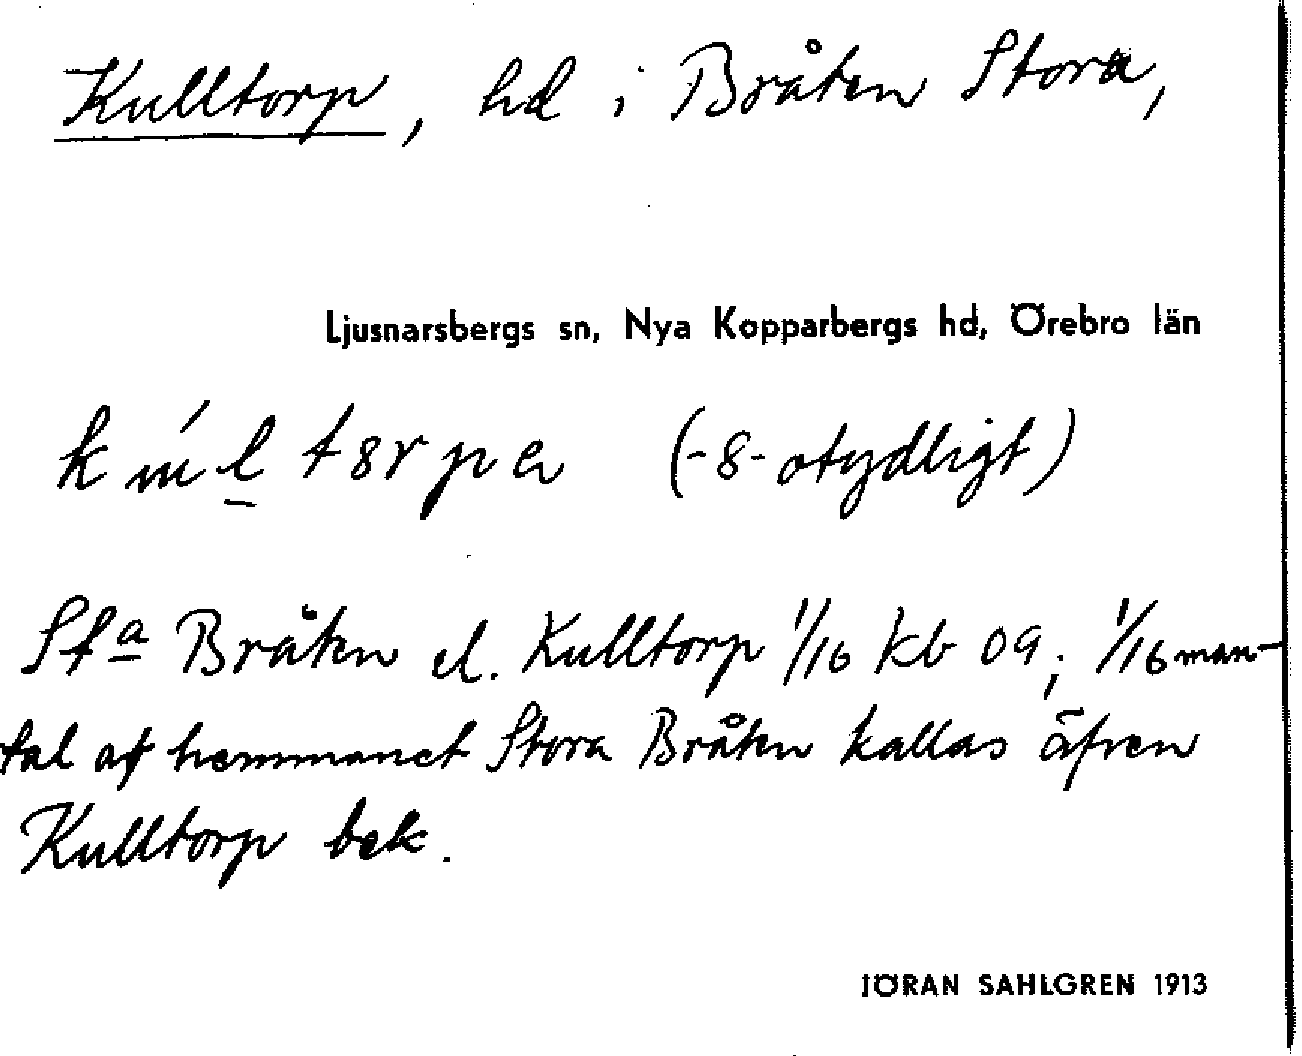 Kulltorp, hd i Bråten Stora,
Ljusnarsbergs sn, Nya Kopparbergs hd, Örebro län
(-8- otydligt)
Sta Bråten el. Kulltorp 1/16 kb 09; 1/16 man-
tal af hemmanet Stora Bråten kallas äfven
Kulltorp bek.
JÖRAN SAHLGREN 1913